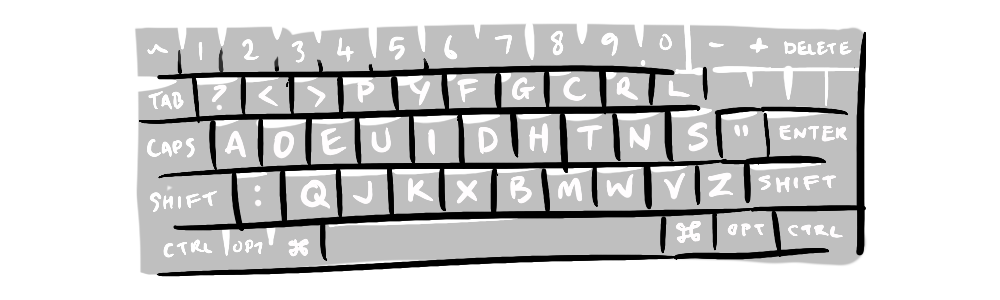 ~ 1 2 3 4 5 6 7 8 9 0 - + DELETE
TAB ? < > P Y F G C R L
CAPS A O E U I D H T N S " ENTER
SHIFT : Q J K X B M W V Z SHIFT
CTRL OPT ⌘ ⌘ OPT CTRL